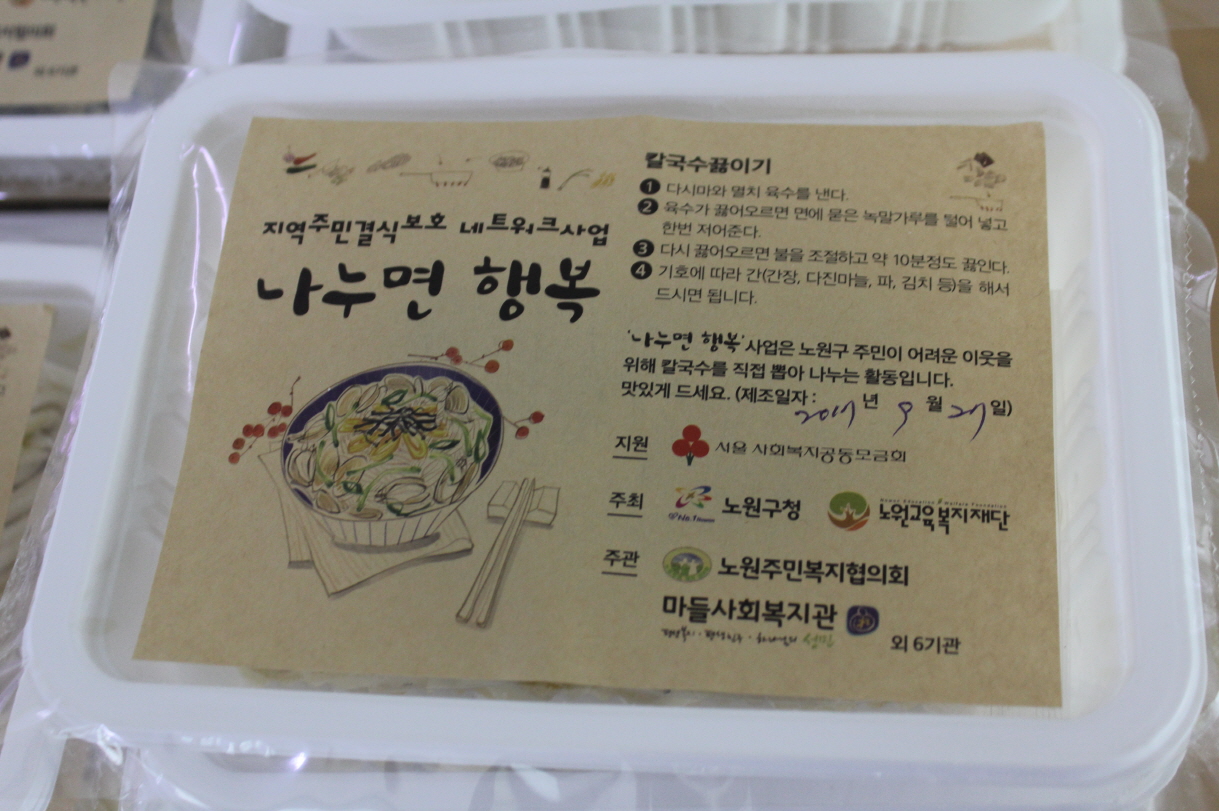 지역주민결식보호 네트워크사업
나누면 행복
칼국수끓이기
❶ 다시마와 멸치 육수를 낸다.
❷ 육수가 끓어오르면 면에 묻은 녹말가루를 털어 넣고
한번 저어준다.
❸ 다시 끓어오르면 불을 조절하고 약 10분정도 끓인다.
❹ 기호에 따라 간(간장, 다진마늘, 파, 김치 등)을 해서
드시면 됩니다.
'나누면 행복'사업은 노원구 주민이 어려운 이웃을
위해 칼국수를 직접 뽑아 나누는 활동입니다.
맛있게 드세요. (제조일자 : 년 9월 일)
지원 서울 사회복지공동모금회
주최 노원구청 노원교육복지재단
주관 노원주민복지협의회
마들사회복지관
외 6기관
외 6기관